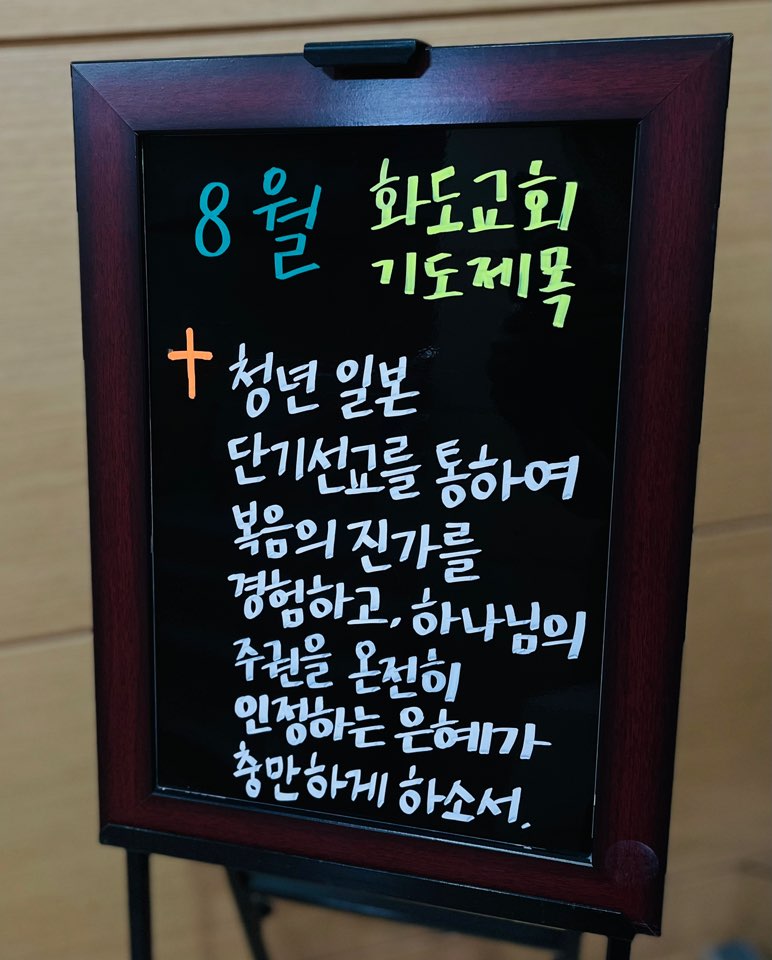 8월 화도교회
기도제목
청년 일본
단기선교를 통하여
복음의 진가를
경험하고, 하나님의
주권을 온전히
인정하는 은혜가
충만하게 하소서.